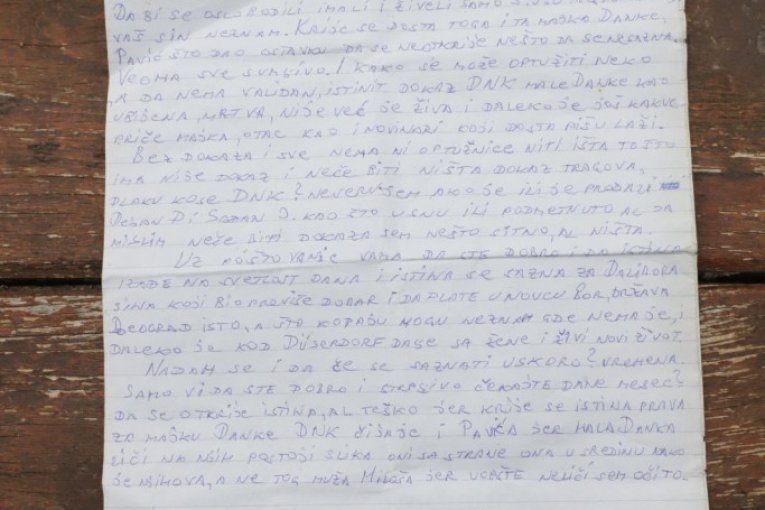 DA BI SE OSLOBODILI IMALI I ŽIVELI SAMO
VAŠ SIN NEZNAM. KRIJE SE DOSTA TOGA I TA MAJKA DANKE,
PAVIĆ ŠTO DAO OSTAVKU DA SE NEOTKRIJE NEŠTO DA SE NESAZNA.
VEOMA SVE SUMJIVO. I KAKO SE MOŽE OPTUŽITI NEKO
A DA NEMA VALIDAN, ISTINIT DOKAZ DNK MALE DANKE KAO
UBIJENA, MRTVA, NIJE VEĆ JE ŽIVA I DALEKO JE JOŠ KAKVE
PRIČE MAJKA, OTAC KAO I NOVINARI KOJI DOSTA PIŠU LAŽI.
BEZ DOKAZA I SVE NEMA NI OPTUŽNICE NITI IŠTA TO ŠTO
IMA NIJE DOKAZ I NEĆE BITI NIŠTA DOKAZ TRAGOVA,
DLAKU KOSE DNK? NEVERUJEM AKO JE ILI JE PRODAZI
DEJAN D I SRDAN J. KAO ŠTO USNU ILI PODMETNUTO AL DA
MISLIM NEĆE BITI DOKAZA SEM NEŠTO SITNO, AL NIŠTA.
UZ POŠTOVANJE VAMA DA STE DOBRO I DA ISTINA
IZAĐE NA SVETLOST DANA I ISTINA SE SAZNA ZA DALIBORA
SINA KOJI BIO PREVIŠE DOBAR I DA PLATE U NOVCU BOR, DRŽAVA
BEOGRAD ISTO, A ŠTO KOPAJU MOGU NEZNAM GDE NEMA JE,
DALEKO JE KOD DIJSERDORF DAJE SA ŽENE I ŽIVI NOVI ŽIVOT.
NADAM SE I DA ĆE SE SAZNATI USKORO? VREMENA
SAMO VI DA STE DOBRO I STRPJIVO ČEKAJTE DANE MESEC?
DA SE OTKRIJE ISTINA, AL TEŠKO JER KRIJE SE ISTINA PRAVA
ZA MAJKU DANKE DNK ČIJA JE I PAVIĆA JER MALA DANKA
LIČI NA NJIH POSTOJI SLIKA ONI SA STRANE ONA U SREDINU KAKO
JE NJIHOVA, A NE TOG MUŽA MILOŠA JER UOPŠTE NELIČI SEM OČI TO.